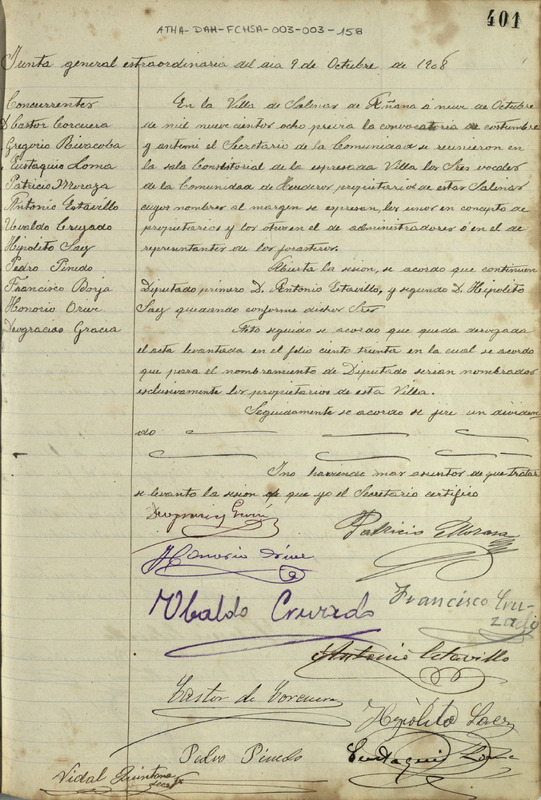 401
ATHA-DAH-FCHSA-003-003-158
Junta general extraordinaria del dia 9 de Octubre de 1908
Concurrentes
D Castor Corcuera
Gregorio
Eustaquio Loma
Patricio Moraza
Antonio Estavillo
Uvaldo Cruzado
Hipolito Saez
Pedro Pinedo
Francisco Borja
Honorio Orive
Deogracias Gracia
En la Villa de Salinas de Añana á nueve de Octubre
de mil nuevecientos ocho previa la convocatoria de costumbre
y antemi el Secretario de la Comunidad se reunieron en
la sala Consistorial de la espresada Villa los Sres vocales
de la Comunidad de Herederos propietarios de estas Salinas
cuyos nombres al margen se espresan, los unos en concepto de
propietarios y los otros en el de administradores ó en el de
representantes de los forasteros.
Abierta la sesion, se acordo que continuen
Diputado primero D. Antonio Estavillo, y segundo D. Hipolito
Saez quedando conforme dichos Sres
Acto seguido se acordo que queda derogada
el acta levantada en el folio ciento treinta en la cual se acordo
que para el nombramiento de Diputado serian nombrados
esclusivamente los propietarios de esta Villa.
Seguidamente se acordo se jire un dividen
do
I no habiendo mas asuntos de que tratar
se levanto la sesion de que yo el Secretario certifico
Patricio Moraza
Honorio Orive
Ubaldo Cruzado
Francisco Cru-
zado
Antonio Estavillo
Castor de Corcuera
Hipólito Saez
Pedro Pinedo
Eustaquio Loma
Vidal Quintana